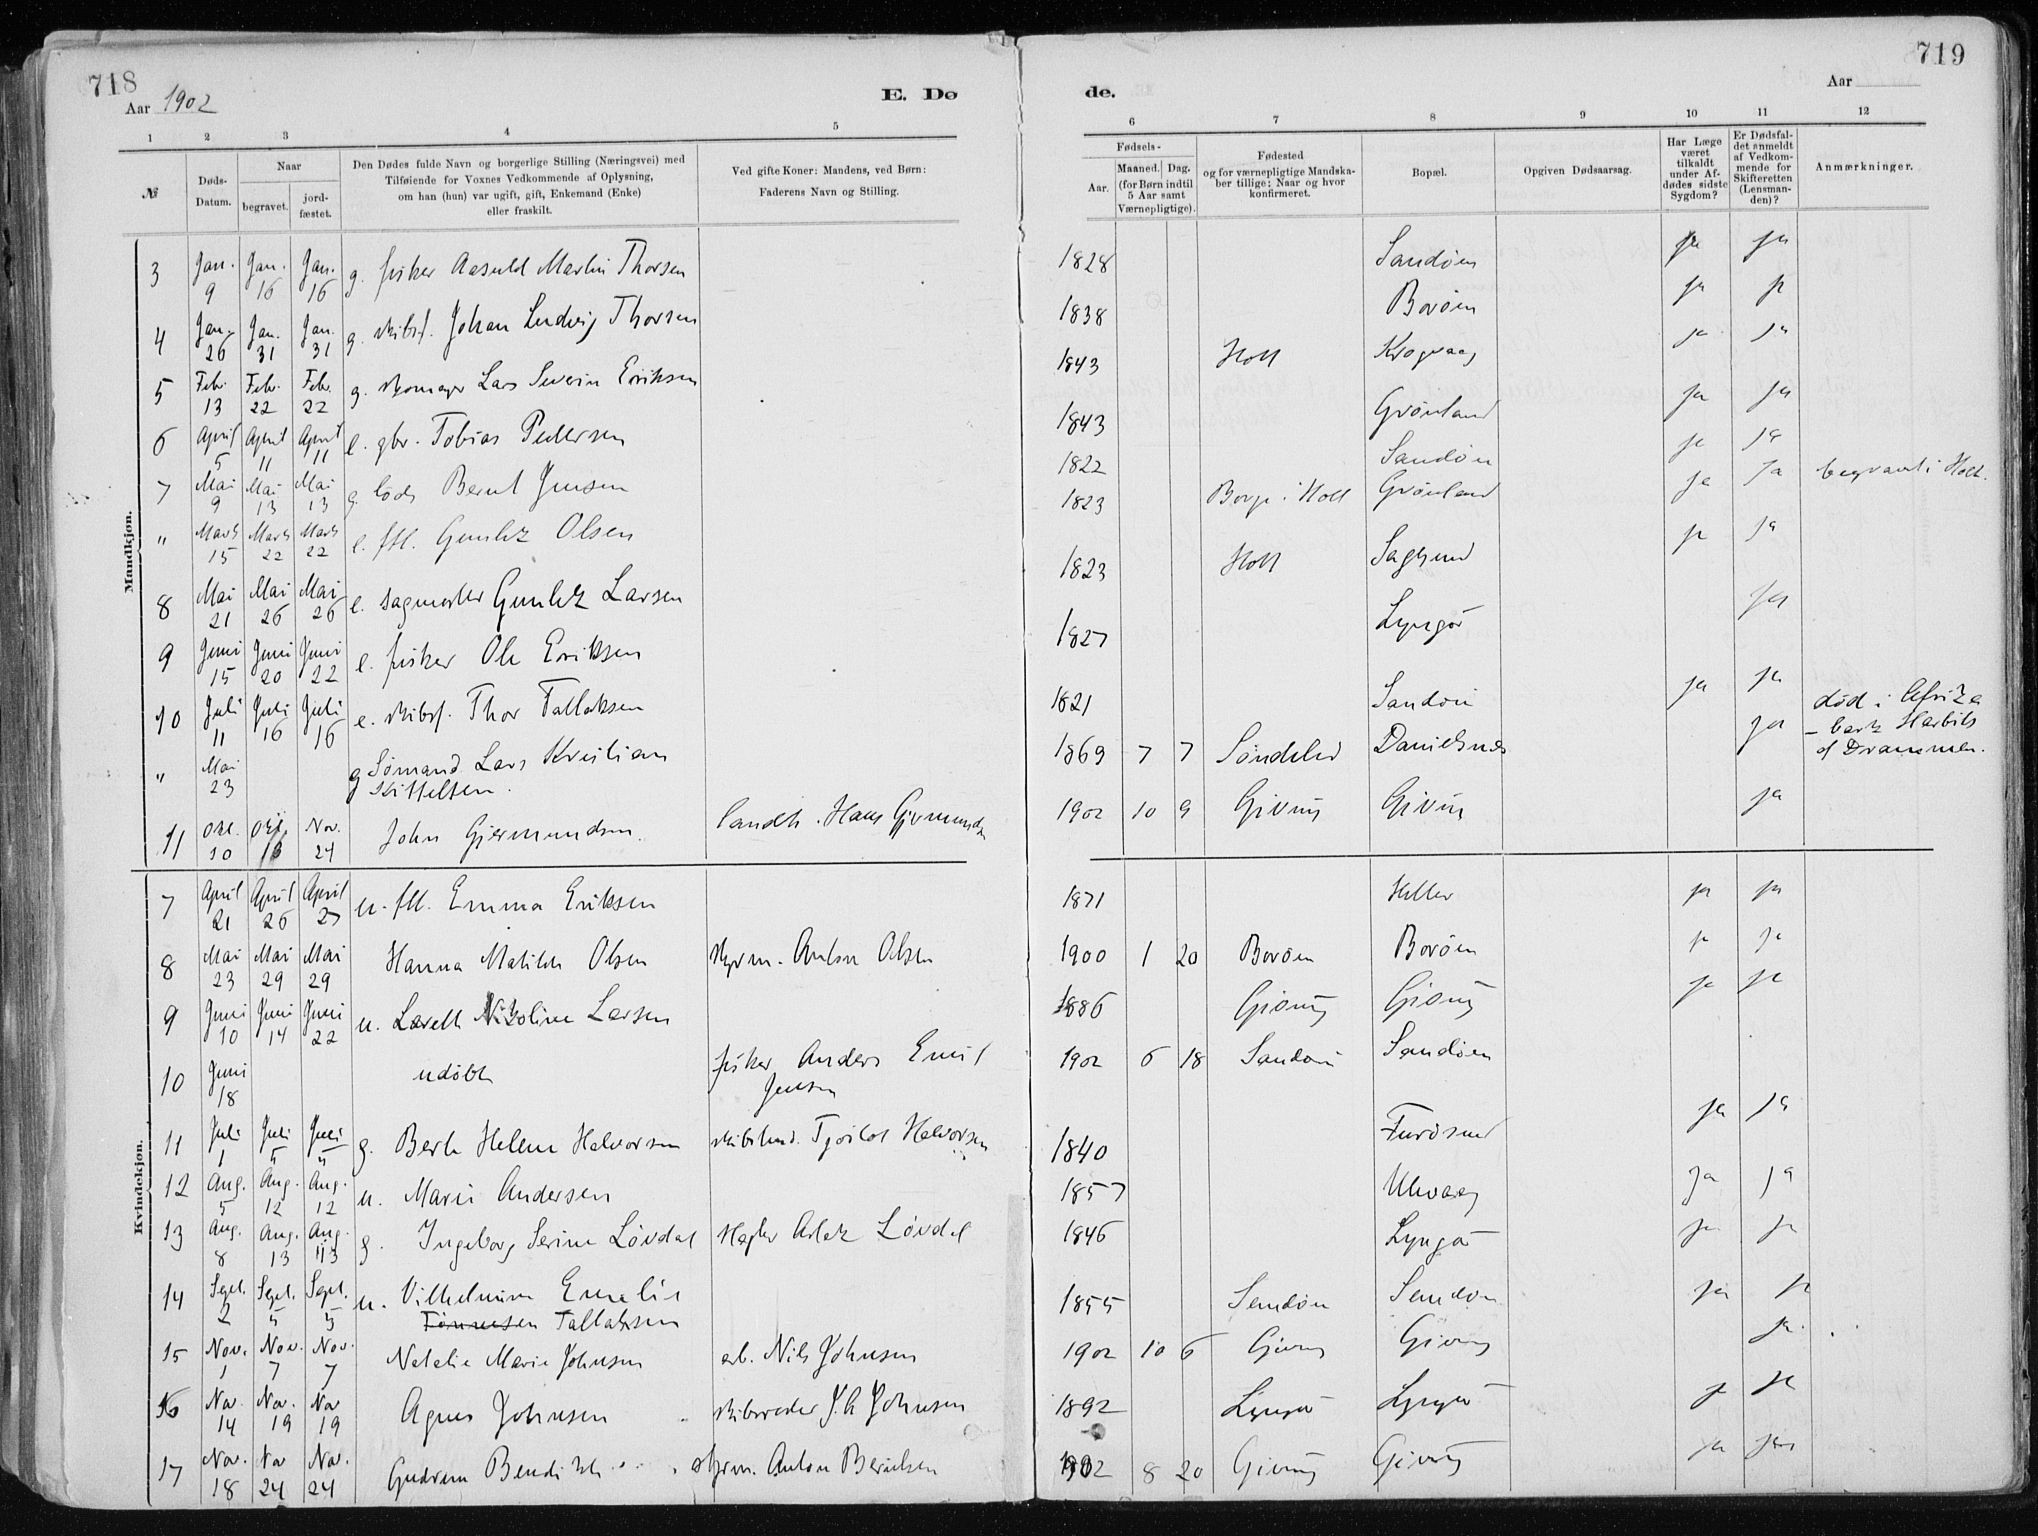 718
719
Aar 1902
E. Dø
de.
Aar
1 2 3 4 5 6 7 8 9 10 11 12
№
Døds-Datum.
Naar
begravet.
jord-fæstet.
Den Dødes fulde Navn og borgerlige Stilling (Næringsvei) med
Tilføiende for Voxnes Vedkommende af Oplysning,
om han (hun) var ugift, gift, Enkemand (Enke)
eller fraskilt.
Ved gifte Koner: Mandens, ved Børn:
Faderens Navn og Stilling.
Fødsels-
Aar.
Maaned. Dag.
(for Børn indtil
5 Aar samt
Værnepligtige).
Fødested
og for værnepligtige Mandska-
ber tillige: Naar og hvor
konfirmeret.
Bopæl.
Opgiven Dødsaarsag.
Har Læge
været
tilkaldt
under Af-
dødes sidste
Sygdom?
Er Dødsfal-
det anmeldt
af Vedkom-
mende for
Skifteretten
(Lensman-
den)?
Anmærkninger.
Mandkjøn.
3 Jan. 9 Jan. 16 Jan. 16 g. fisker Aasuld Martin Thorsen 1828 Sandøen ja ja
4 Jan. 26 Jan. 31 Jan. 31 g. skibsf. Johan Ludvig Thorsen 1838 Borøen ja ja
5 Febr. 13 Febr. 22 Febr. 22 g. skomager Lars Severin Eriksen 1843 Holt Krogvaag ja ja
6 April 5 April 11 April 11 e. gbr. Tobias Pedersen 1843 Grønland ja ja
7 Mai 9 Mai 13 Mai 13 g. lods Bernt Jensen 1822 Sandøen ja ja
" Marts 15 Marts 22 Marts 22 e. fhl. Olsen 1823 Borge i Holt Grønland ja ja begravet i Holt.
8 Mai 21 Mai 26 Mai 26 e. Larsen 1823 Holt Sagesund ja ja
9 Juni 15 Juni 20 Juni 22 e. fisker Ole Eriksen 1827 Lyngør ja
10 Juli 11 Juli 16 Juli 16 e. skibsf. Thor Tallaksen 1821 Sandøen ja ja
" Mai 23 g Sømand Lars Kristian
Kittelsen. 1869 7 7 Søndeled Danielsnes ja død i Afrika
– bark
af Drammen.
11 Okt. 10 Okt. 16 Nov. 24 John Gjermundsen landh. Hans Gjermundsen 1902 10 9 Giving Giving ja
Kvindekjøn.
7 April 21 April 26 April 27 u. fhl. Emma Eriksen 1871 ja ja
8 Mai 23 Mai 29 Mai 29 Hanna Matilde Olsen styrm. Anton Olsen 1900 1 20 Borøen Borøen ja ja
9 Juni 10 Juni 14 Juni 22 u. Nikoline Larsen 1886 Giving Giving ja ja
10 Juni 18 udøbt fisker Anders Emil
Jensen 1902 6 18 Sandøen Sandøen
11 Juli 1 Juli 5 Juli 5 g. Berte Helene Halvorsen Halvorsen 1840 Furøsund ja ja
12 Aug. 5 Aug. 12 Aug. 12 u. Marie Andersen 1857 Ulevaag ja ja
13 Aug. 8 Aug. 13 Aug. 13 g. Ingeborg Serine Løvdal Løvdal 1846 Lyngør ja ja
14 Sept. 2 Sept. 5 Sept. 5 u. Vilhelmine Emalie
Tønnesen Tallaksen 1855 Sandøen Sandøen ja ja
15 Nov. 1 Nov. 7 Nov. 7 Natalie Marie Johnsen arb. Nils Johnsen 1902 10 6 Giving Giving ja
16 Nov. 14 Nov. 19 Nov 19 Agnes Johnsen skibsreder J. A Johnsen 1892 Lyngør Lyngør ja ja
17 Nov. 18 Nov 24 Nov. 24 Gudrun styrm. Anton 1902 8 20 Giving Giving ja ja